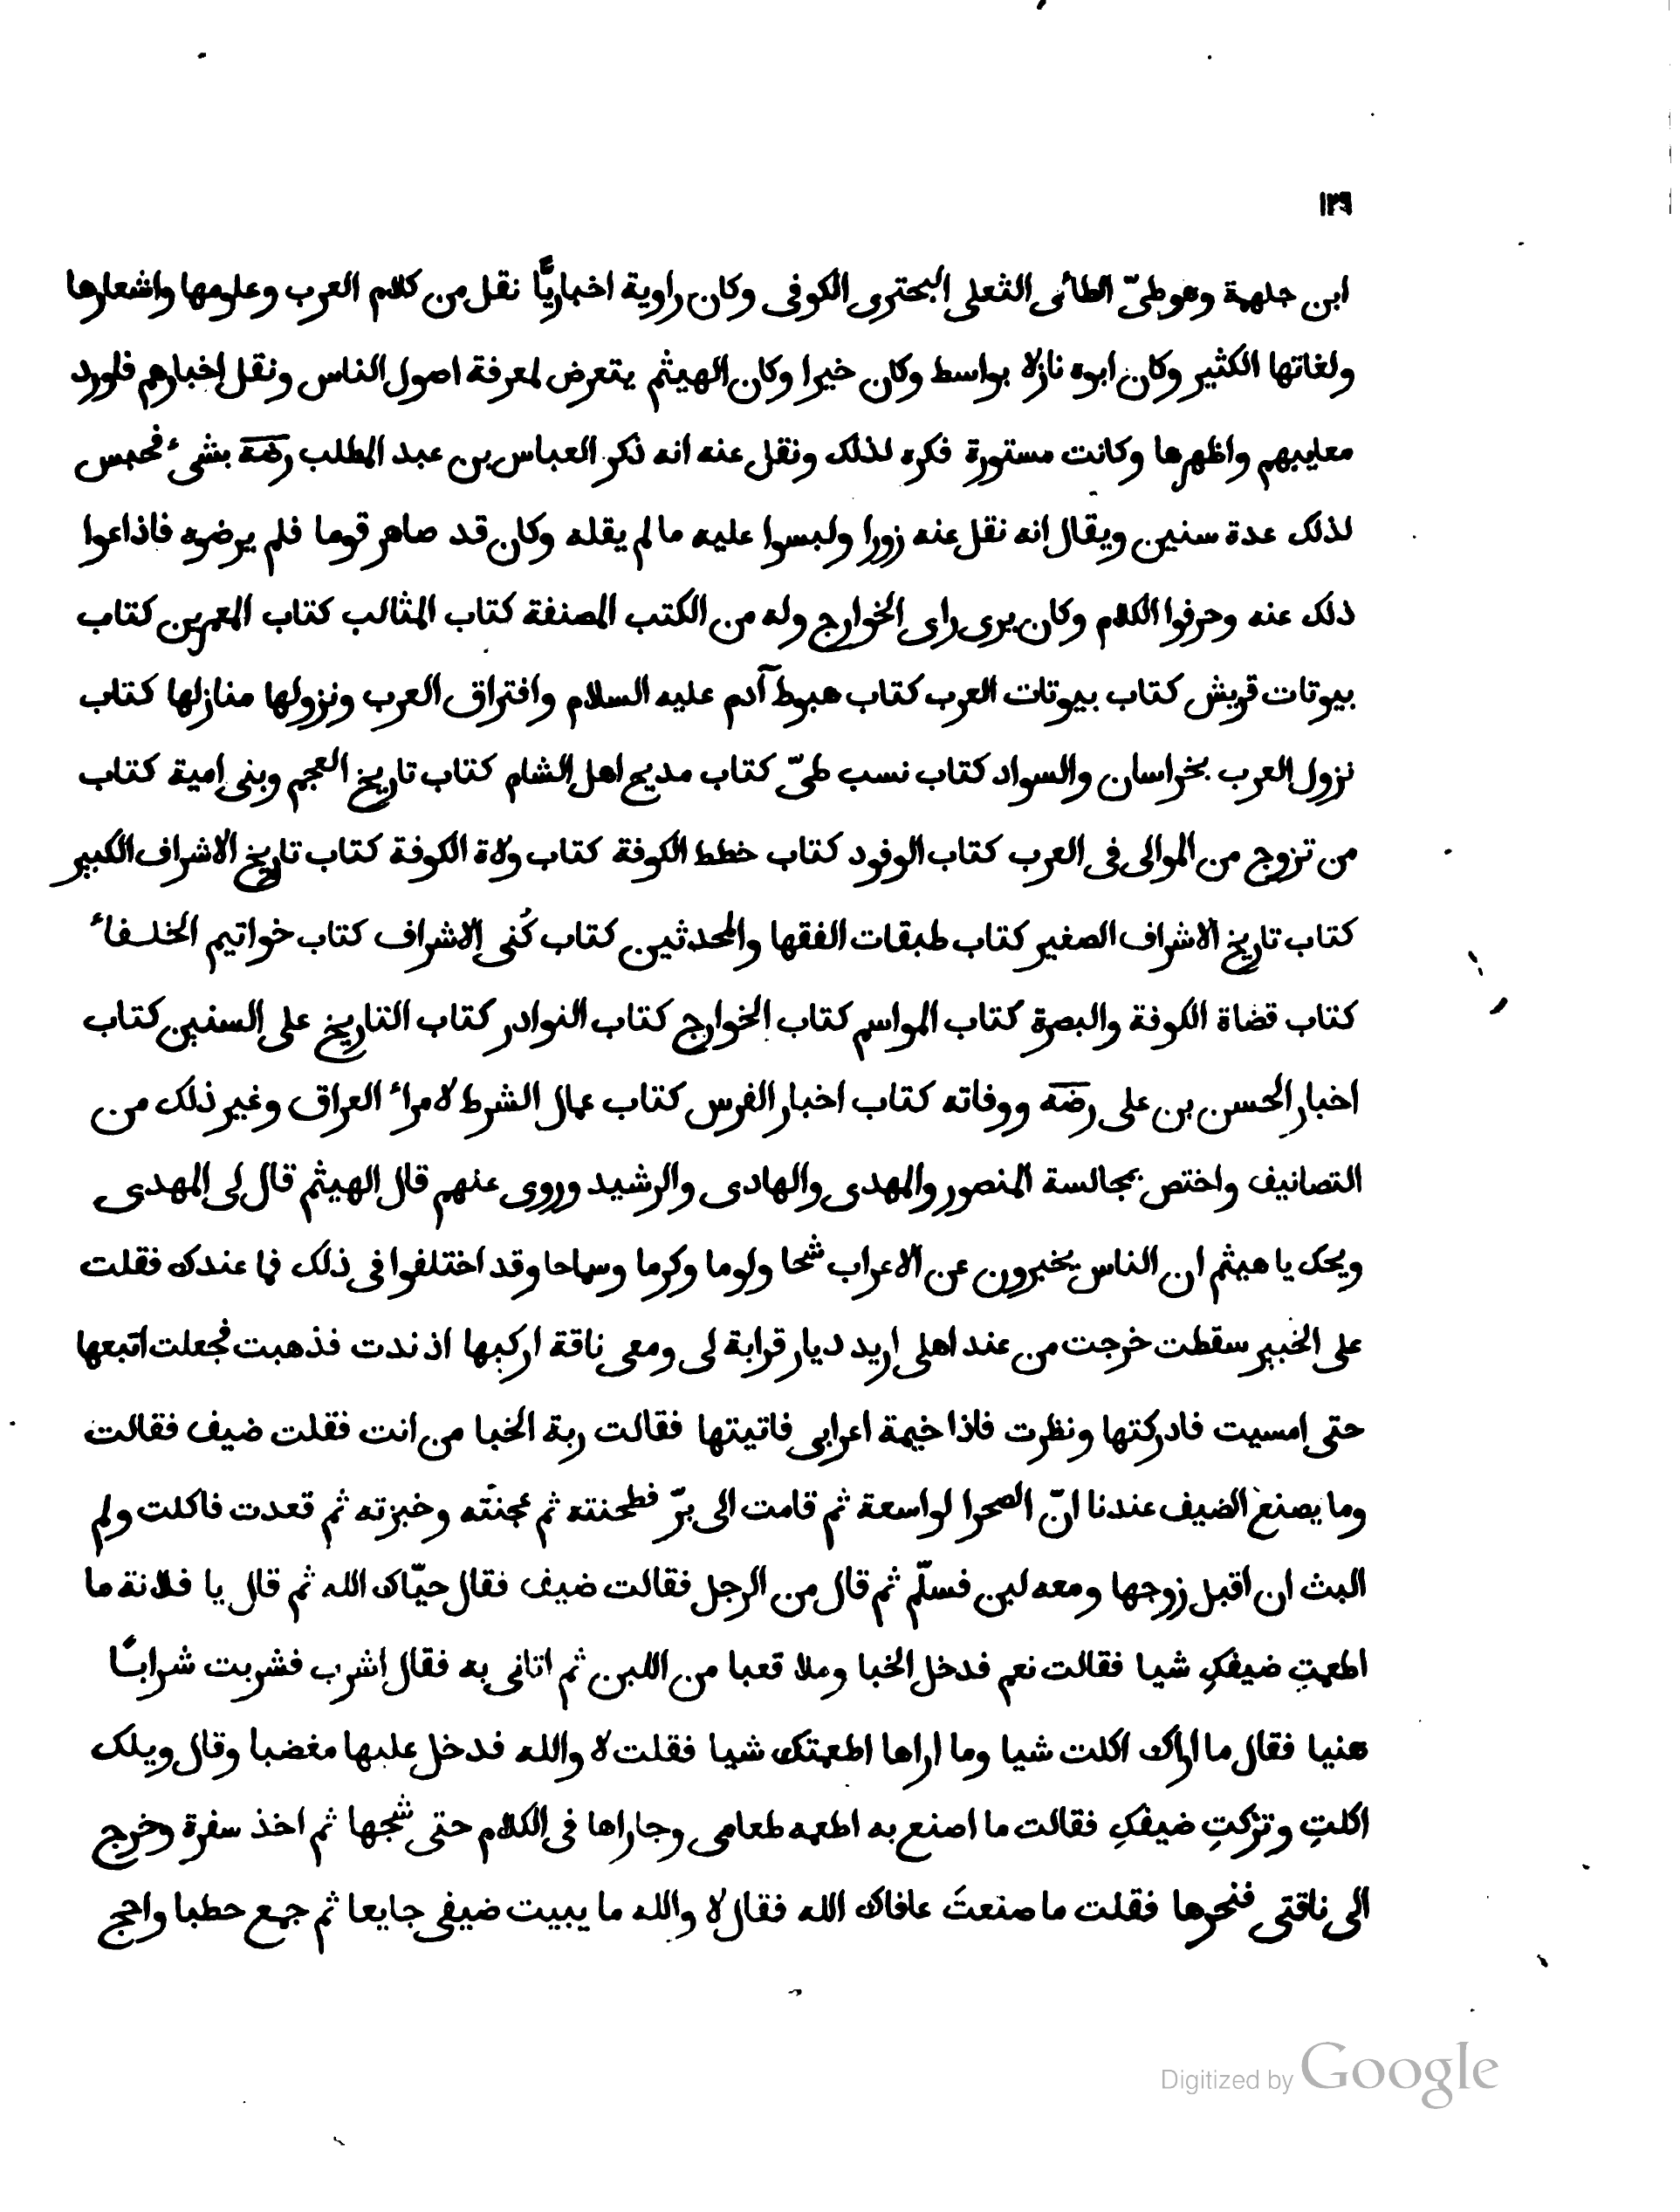 ١٣٩
ابن جلهمة وهو طىّ الطائى الثعلى البحترى الكوفى وكان راوية اخباريًّا نقل من كلام العرب وعلومها واشعارها
ولغاتها الكثير وكان ابوه نازلا بواسط وكان خيرا وكان الهيثم يتعرض لمعرفة اصول الناس ونقل اخبارهم فاورد
معايبهم واظهرها وكانت مستورة فكره لذلك ونقل عنه انه ذكر العباس بن عبد المطلب رضه بشىء فحبس
لذلك عدة سنين ويقال انه نقل عنه زورا ولبسوا عليه ما لم يقله وكان قد صاهر قوما فلم يرضوه فاذاعوا
ذلك عنه وحرفوا الكلام وكان يرى راى الخوارج وله من الكتب المصنفة كتاب المثالب كتاب المعمرين كتاب
بيوتات قريش كتاب بيوتات العرب كتاب هبوط آدم عليه السلام وافتراق العرب ونزولها منازلها كتاب
نزول العرب بخراسان والسواد كتاب نسب طىّ كتاب مديح اهل الشام كتاب تاريخ العجم وبنى امية كتاب
من تزوج من الموالى فى العرب كتاب الوفود كتاب خطط الكوفة كتاب ولاة الكوفة كتاب تاريخ الاشراف الكبير
كتاب تاريخ الاشراف الصغير كتاب طبقات الفقها والمحدثين كتاب كُنى الاشراف كتاب خواتيم الخلفاء
كتاب قضاة الكوفة والبصرة كتاب المواسم كتاب الخوارج كتاب النوادر كتاب التاريخ على السنين كتاب
اخبار الحسن بن على رضه ووفاته كتاب اخبار الفرس كتاب عمال الشرط لامراء العراق وغير ذلك من
التصانيف واختص بمجالسة المنصور والمهدى والهادى والرشيد وروى عنهم قال الهيثم قال لى المهدى
ويحك يا هيثم ان الناس يخبرون عن الاعراب شحا ولوما وكرما وسماحا وقد اختلفوا فى ذلك فما عندك فقلت
على الخبير سقطت خرجت من عند اهلى اريد ديار قرابة لى ومعى ناقة اركبها اذ ندت فذهبت فجعلت اتبعها
حتى امسيت فادركتها ونظرت فاذا خيمة اعرابى فاتيتها فقالت ربة الخبا من انت فقلت ضيف فقالت
وما يصنع الضيف عندنا انّ الصحرا لواسعة ثم قامت الى برّ فطحنته ثم عجنَته وخبزته ثم قعدت فاكلت ولم
البث ان اقبل زوجها ومعه لبن فسلّم ثم قال من الرجل فقالت ضيف فقال حيّاك الله ثم قال يا فلانة ما
اطعمتِ ضيفكِ شيا فقالت نعم فدخل الخبا وملا قعبا من اللبن ثم اتانى به فقال اشرب فشربت شرابًا
هنيا فقال ما اراك اكلت شيا وما اراها اطعمتك شيا فقلت لا والله فدخل عليها مغضبا وقال ويلك
اكلتِ وتركتِ ضيفكِ فقالت ما اصنع به اطعمه طعامى وجاراها فى الكلام حتى شجها ثم اخذ سفرة وخرج
الى ناقتى فنحرها فقلت ما صنعتَ عافاك الله فقال لا والله ما يبيت ضيفى جايعا ثم جمع حطبا واجج
Digitized by Google